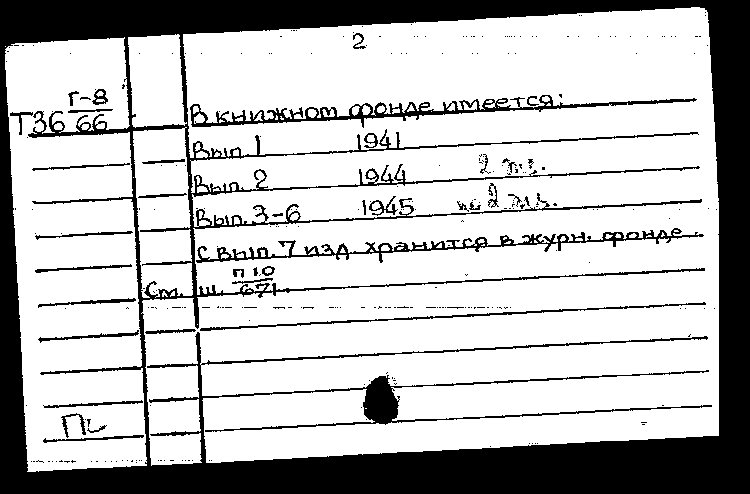 2
Т36 Г-8/66
В книжном фонде имеется:
Вып. 1 1941
Вып. 2 1944 2 экз.
Вып. 3-6 1945 по 2 экз.
С вып. 7 изд. хранится в журн. фонде.
См. ш. П10/671.